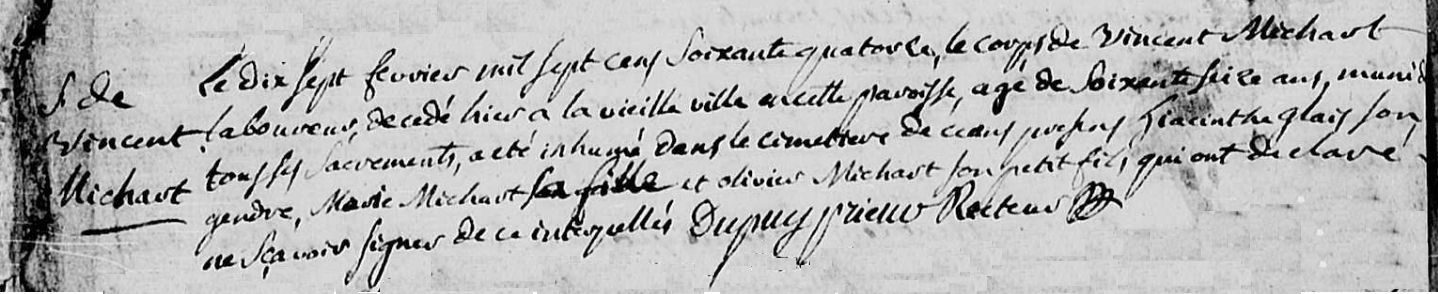 S. de
Vincent
Michart
Le dix sept fevrier mil sept cens soixante quatorze, le corps de Vincent Michart
laboureur, decedé hier a la vieille ville en cette paroisse, agé de soixante seize ans, munid
tous ses sacrements, a eté inhumé dans le cimetiere de ceans presens Hiacinthe glais son
gendre, Marie Michart sa fille et olivier Michart son petit fils, qui ont declaré
ne sçavoir signer de ce interpellés Dupuy prieur Recteur